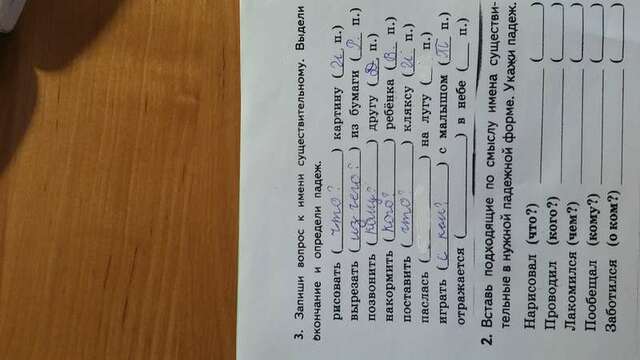 3. Запиши вопрос к имени существительному. Выдели
окончание и определи падеж.
рисовать (что?) картину (И п.)
вырезать (из чего?) из бумаги (Р п.)
позвонить (кому?) другу (Д п.)
накормить (кого?) ребёнка (В п.)
поставить (что?) кляксу (И п.)
паслась ( ) на лугу ( п.)
играть (с кем?) с малышом (Т п.)
отражается ( ) в небе ( п.)
2. Вставь подходящие по смыслу имена существи-
тельные в нужной падежной форме. Укажи падеж.
Нарисовал (что?) ( )
Проводил (кого?) ( )
Лакомился (чем?) ( )
Пообещал (кому?) ( )
Заботился (о ком?) ( )